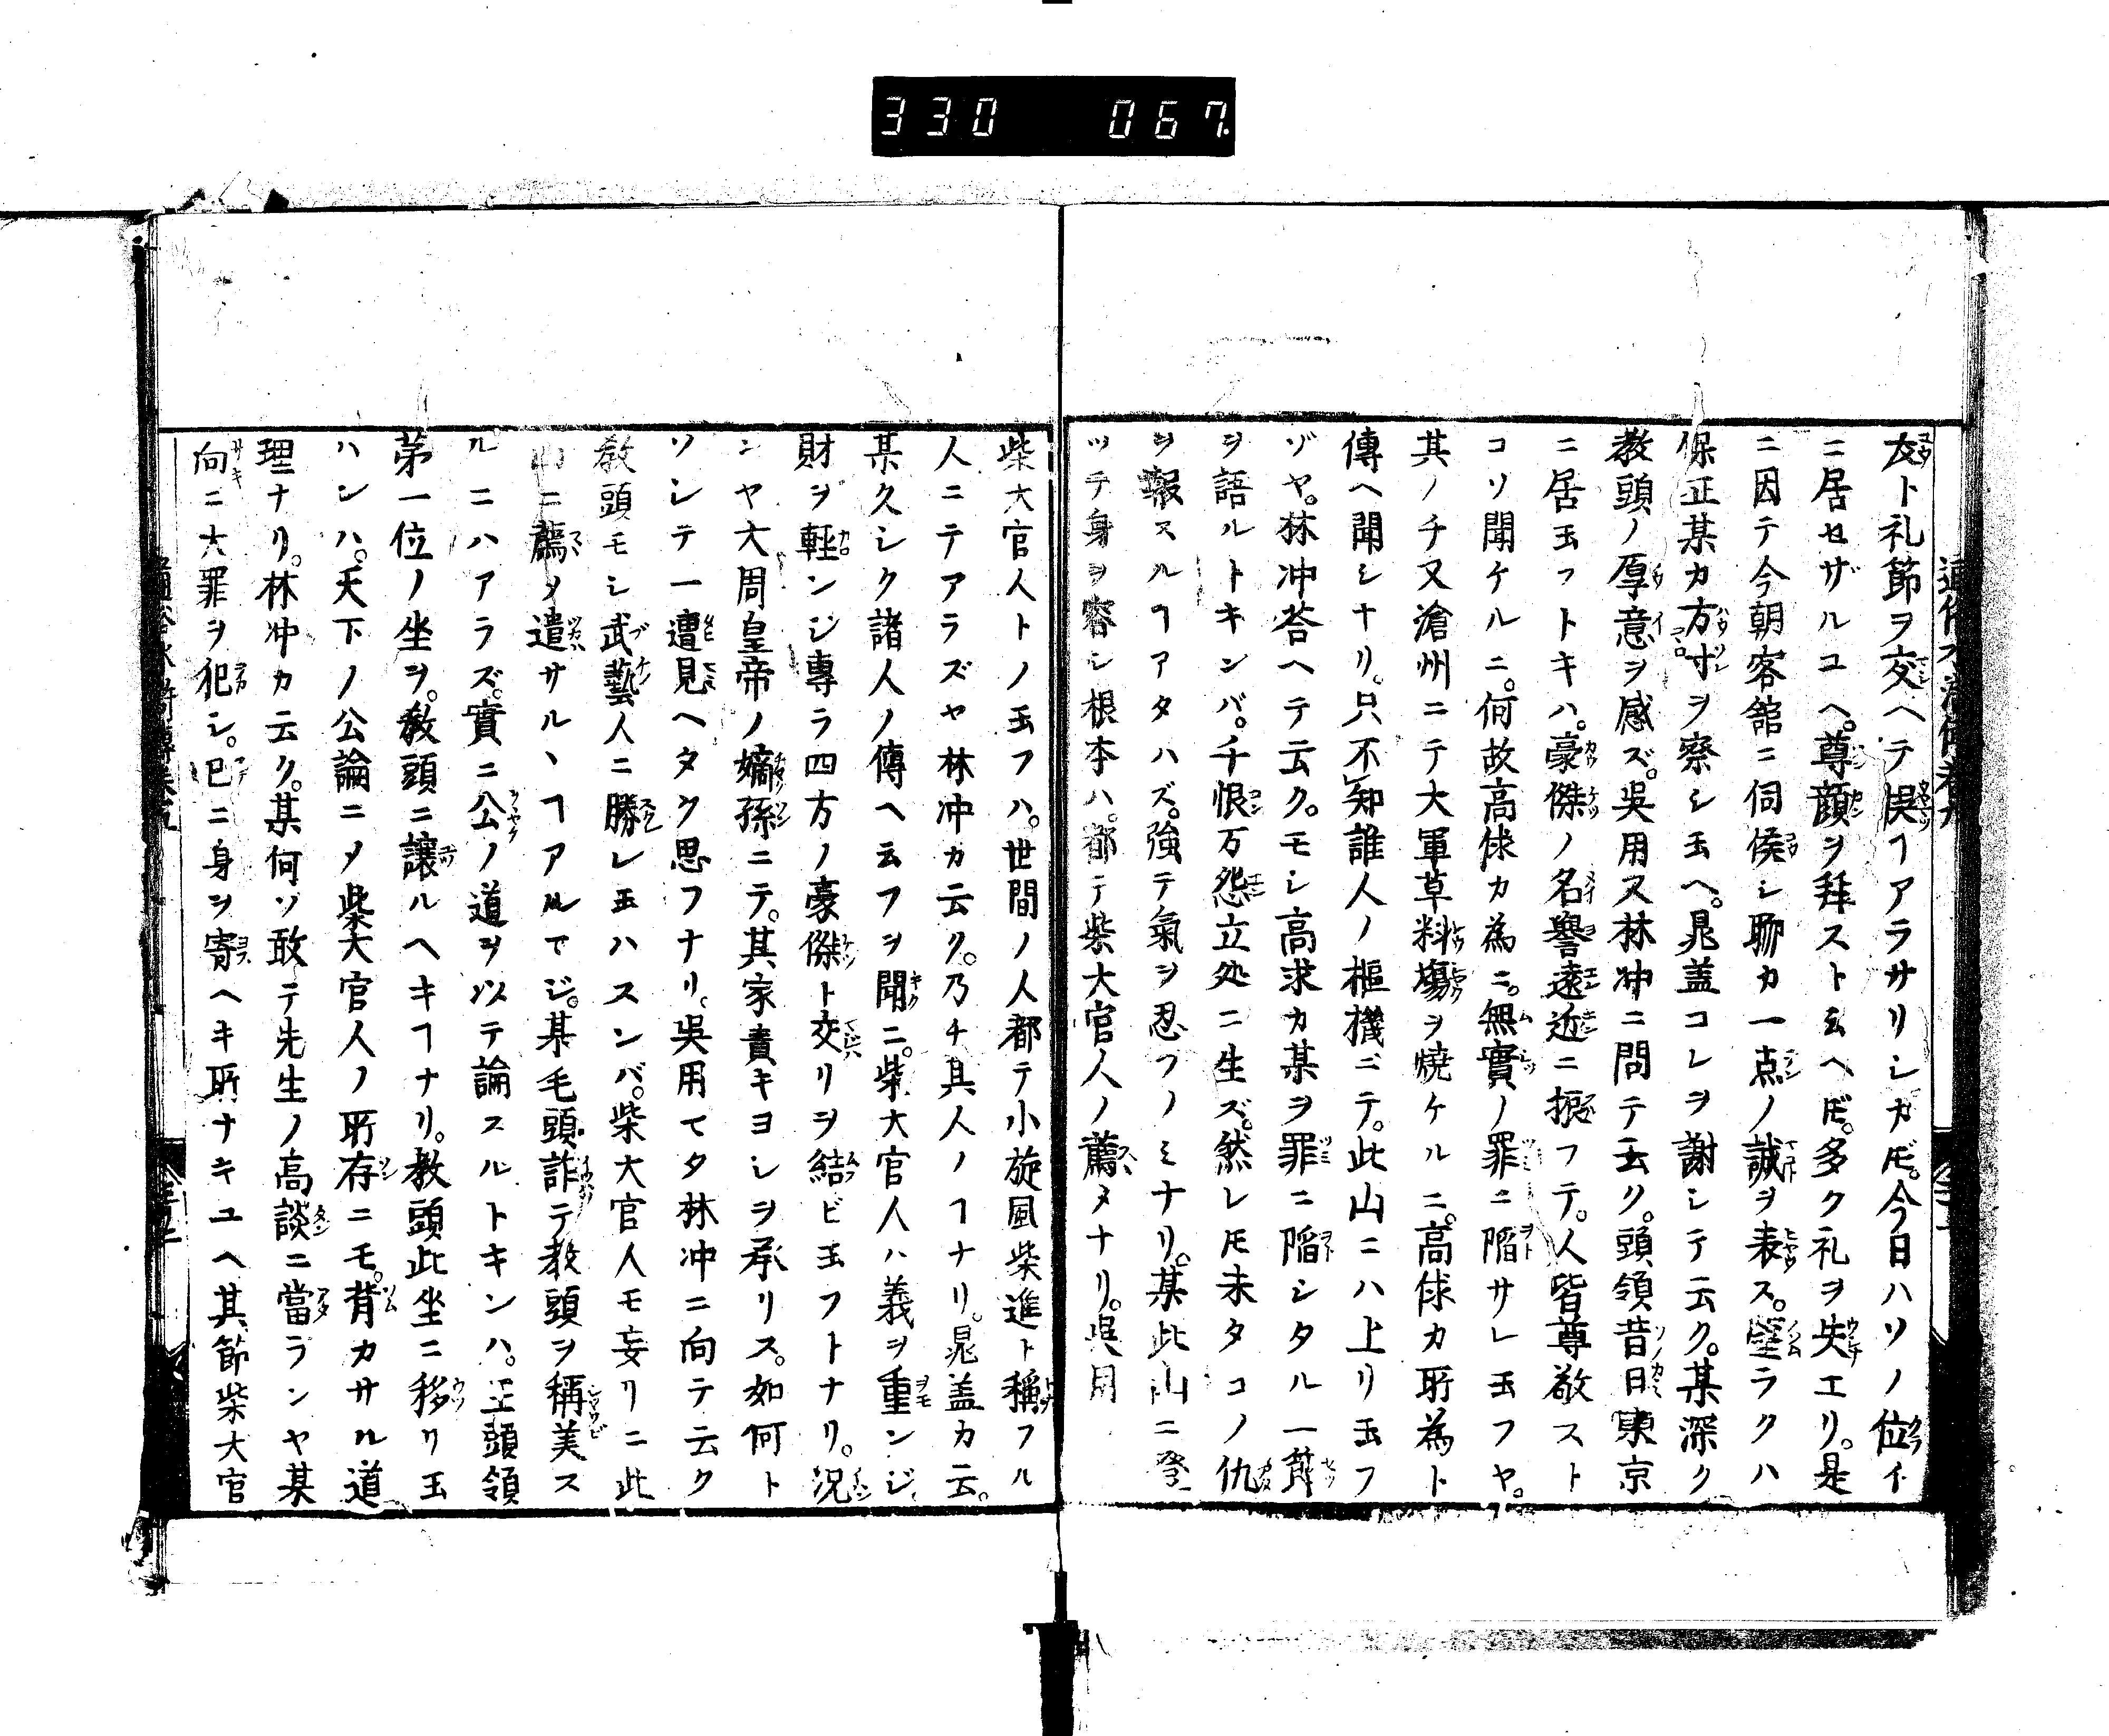 330 067
友ト礼節ヲ交ヘテ悞ヿアラサリシカ𪜈。今日ハソノ位イ
ニ居セザルユヘ。尊顔ヲ拜ストㇺヘ𪜈。多ク礼ヲ失エリ。是
ニ因テ今朝客舘ニ伺候シ聊カ一点ノ誠ヲ表ス。望ラクハ
保正某カ方寸ヲ察シ玉ヘ。晁盖コレヲ謝シテ云ク。某深ク
教頭ノ厚意ヲ感ズ。吳用又林冲ニ問テ云ク。頭領昔日東京
ニ居玉フトキハ。豪傑ノ名譽遠近ニ振フテ。人皆尊敬スト
コソ聞ケルニ。何故高俅カ為ニ。無實ノ罪ニ陥サレ玉フヤ。
其ノチ又滄州ニテ大軍草料塲ヲ焼ケルニ。高俅カ所為ト
傳ヘ聞シナリ。只不知誰人ノ樞機ニテ。此山ニハ上リ玉フ
ゾヤ。林冲荅ヘテ云ク。モシ高求カ某ヲ罪ニ陥シタル一莭
ヲ語ルトキンバ。千恨万怨立処ニ生ズ。然レ𪜈未タコノ仇
ヲ報スルヿアタハズ。強テ氣ヲ忍フノミナリ。某此山ニ登
ツテ身ヲ容シ根本ハ。都テ柴大官人ノ薦メナリ。吳用
柴大官人トノ玉フハ。世間ノ人都テ小旋風柴進ト稱フル
人ニテアラズヤ林冲カ云ク。乃チ其人ノヿナリ。晁盖カ云。
某久シク諸人ノ傳ヘ云フヲ聞ニ。柴大官人ハ義ヲ重ンジ、
財ヲ軽ンジ專ラ四方ノ豪傑ト交リヲ結ビ玉フトナリ。況
ンヤ大周皇帝ノ嫡孫ニテ。其家貴キヨシヲ承リス。如何ト
ソシテ一遭見ヘタク思フナリ。吳用マタ林冲ニ向テ云ク
教頭モシ武藝人ニ勝レ玉ハスンバ。柴大官人モ妄リニ此
山ニ薦メ遣サルヽヿアルマジ。某毛頭詐テ教頭ヲ稱美ス
ルニハアラズ。實ニ公ノ道ヲ以テ論スルトキンハ。王頭領
苐一位ノ坐ヲ。教頭ニ讓ルヘキヿナリ。教頭此坐ニ移リ玉
ハンハ。天下ノ公論ニメ柴大官人ノ所存ニモ。背カサル道
理ナリ。林冲カ云ク。某何ソ敢テ先生ノ高談ニ當ランヤ某
向ニ大罪ヲ犯シ。巳ニ身ヲ寄ヘキ所ナキユヘ其節柴大官